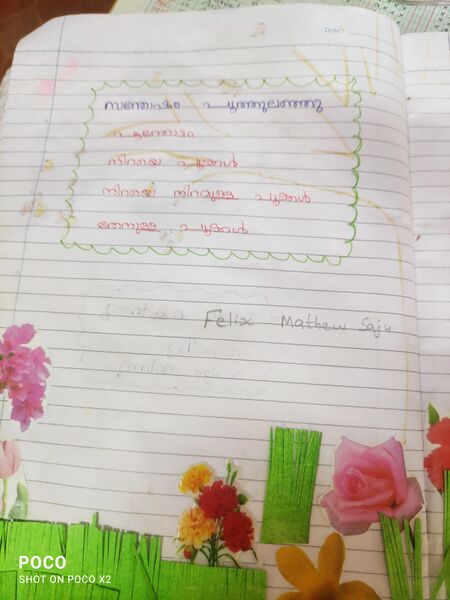 Date:
സന്തോഷം പൂത്തുലഞ്ഞു
പൂന്തോട്ടം
നിറയെ പൂക്കൾ
നിറയെ നിറമുള്ള പൂക്കൾ
തേനുള്ള പൂക്കൾ
Felix Mathew Saju
POCO
SHOT ON POCO X2